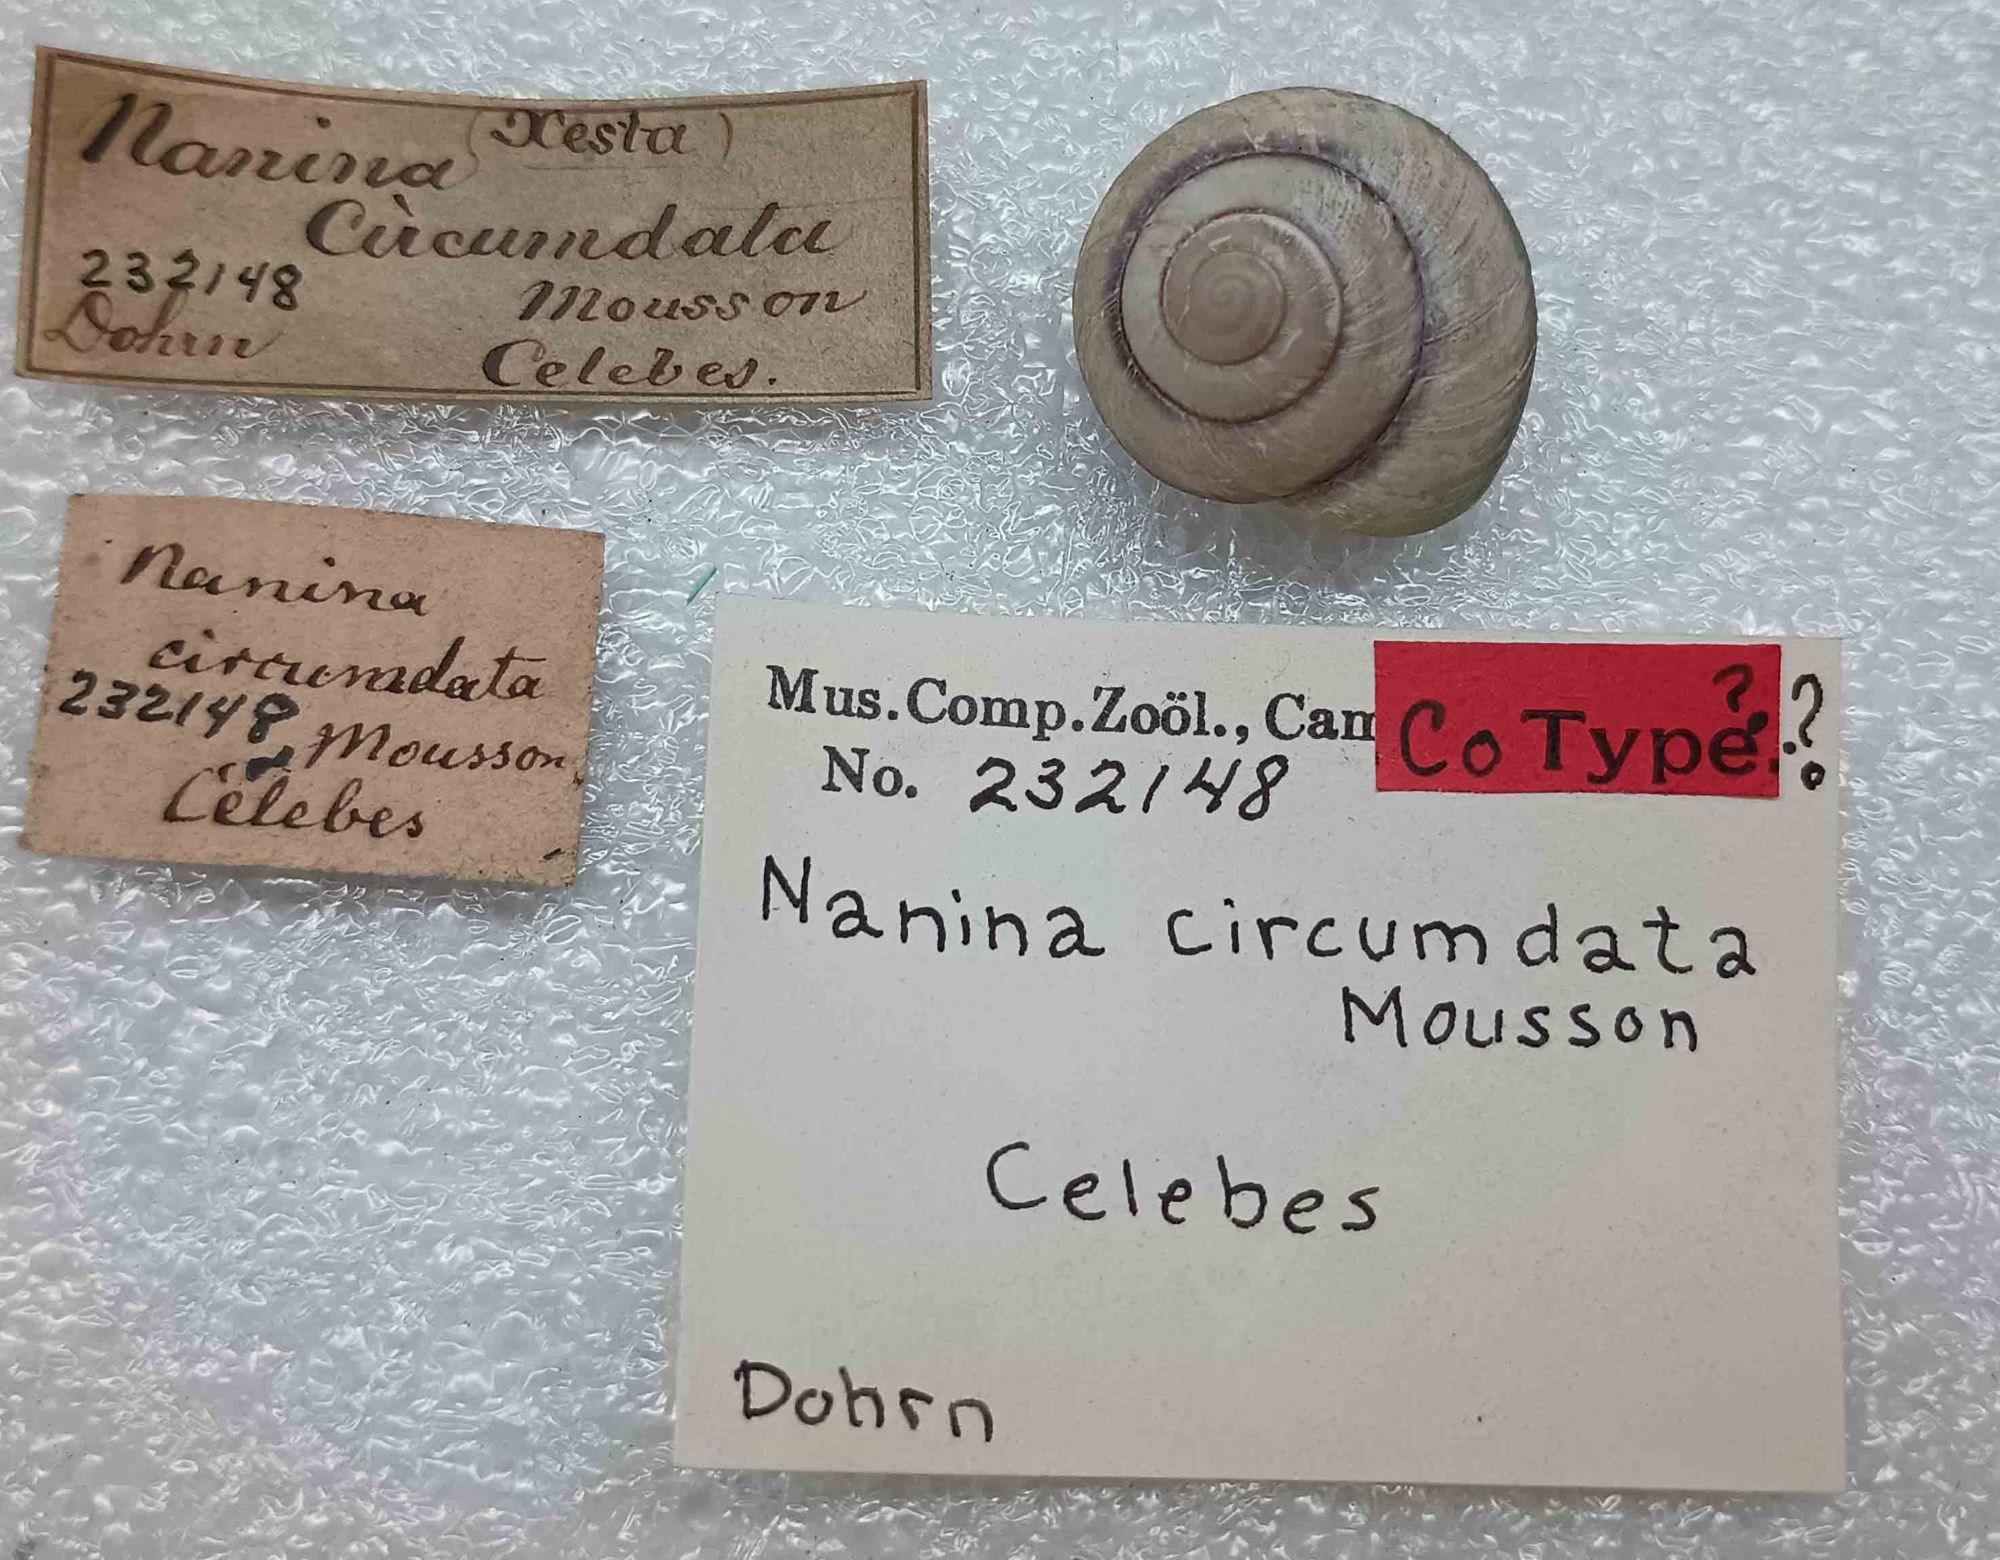 Nanina (Xesta)
Circumdata
232148
Mousson
Dohrn
Celebes.
Nanina
circumdata
232148
Mousson.
Celebes
Mus. Comp. Zoöl., Cam
Co Type. ? ?
No. 232148
Nanina circumdata
Mousson
Celebes
Dohrn